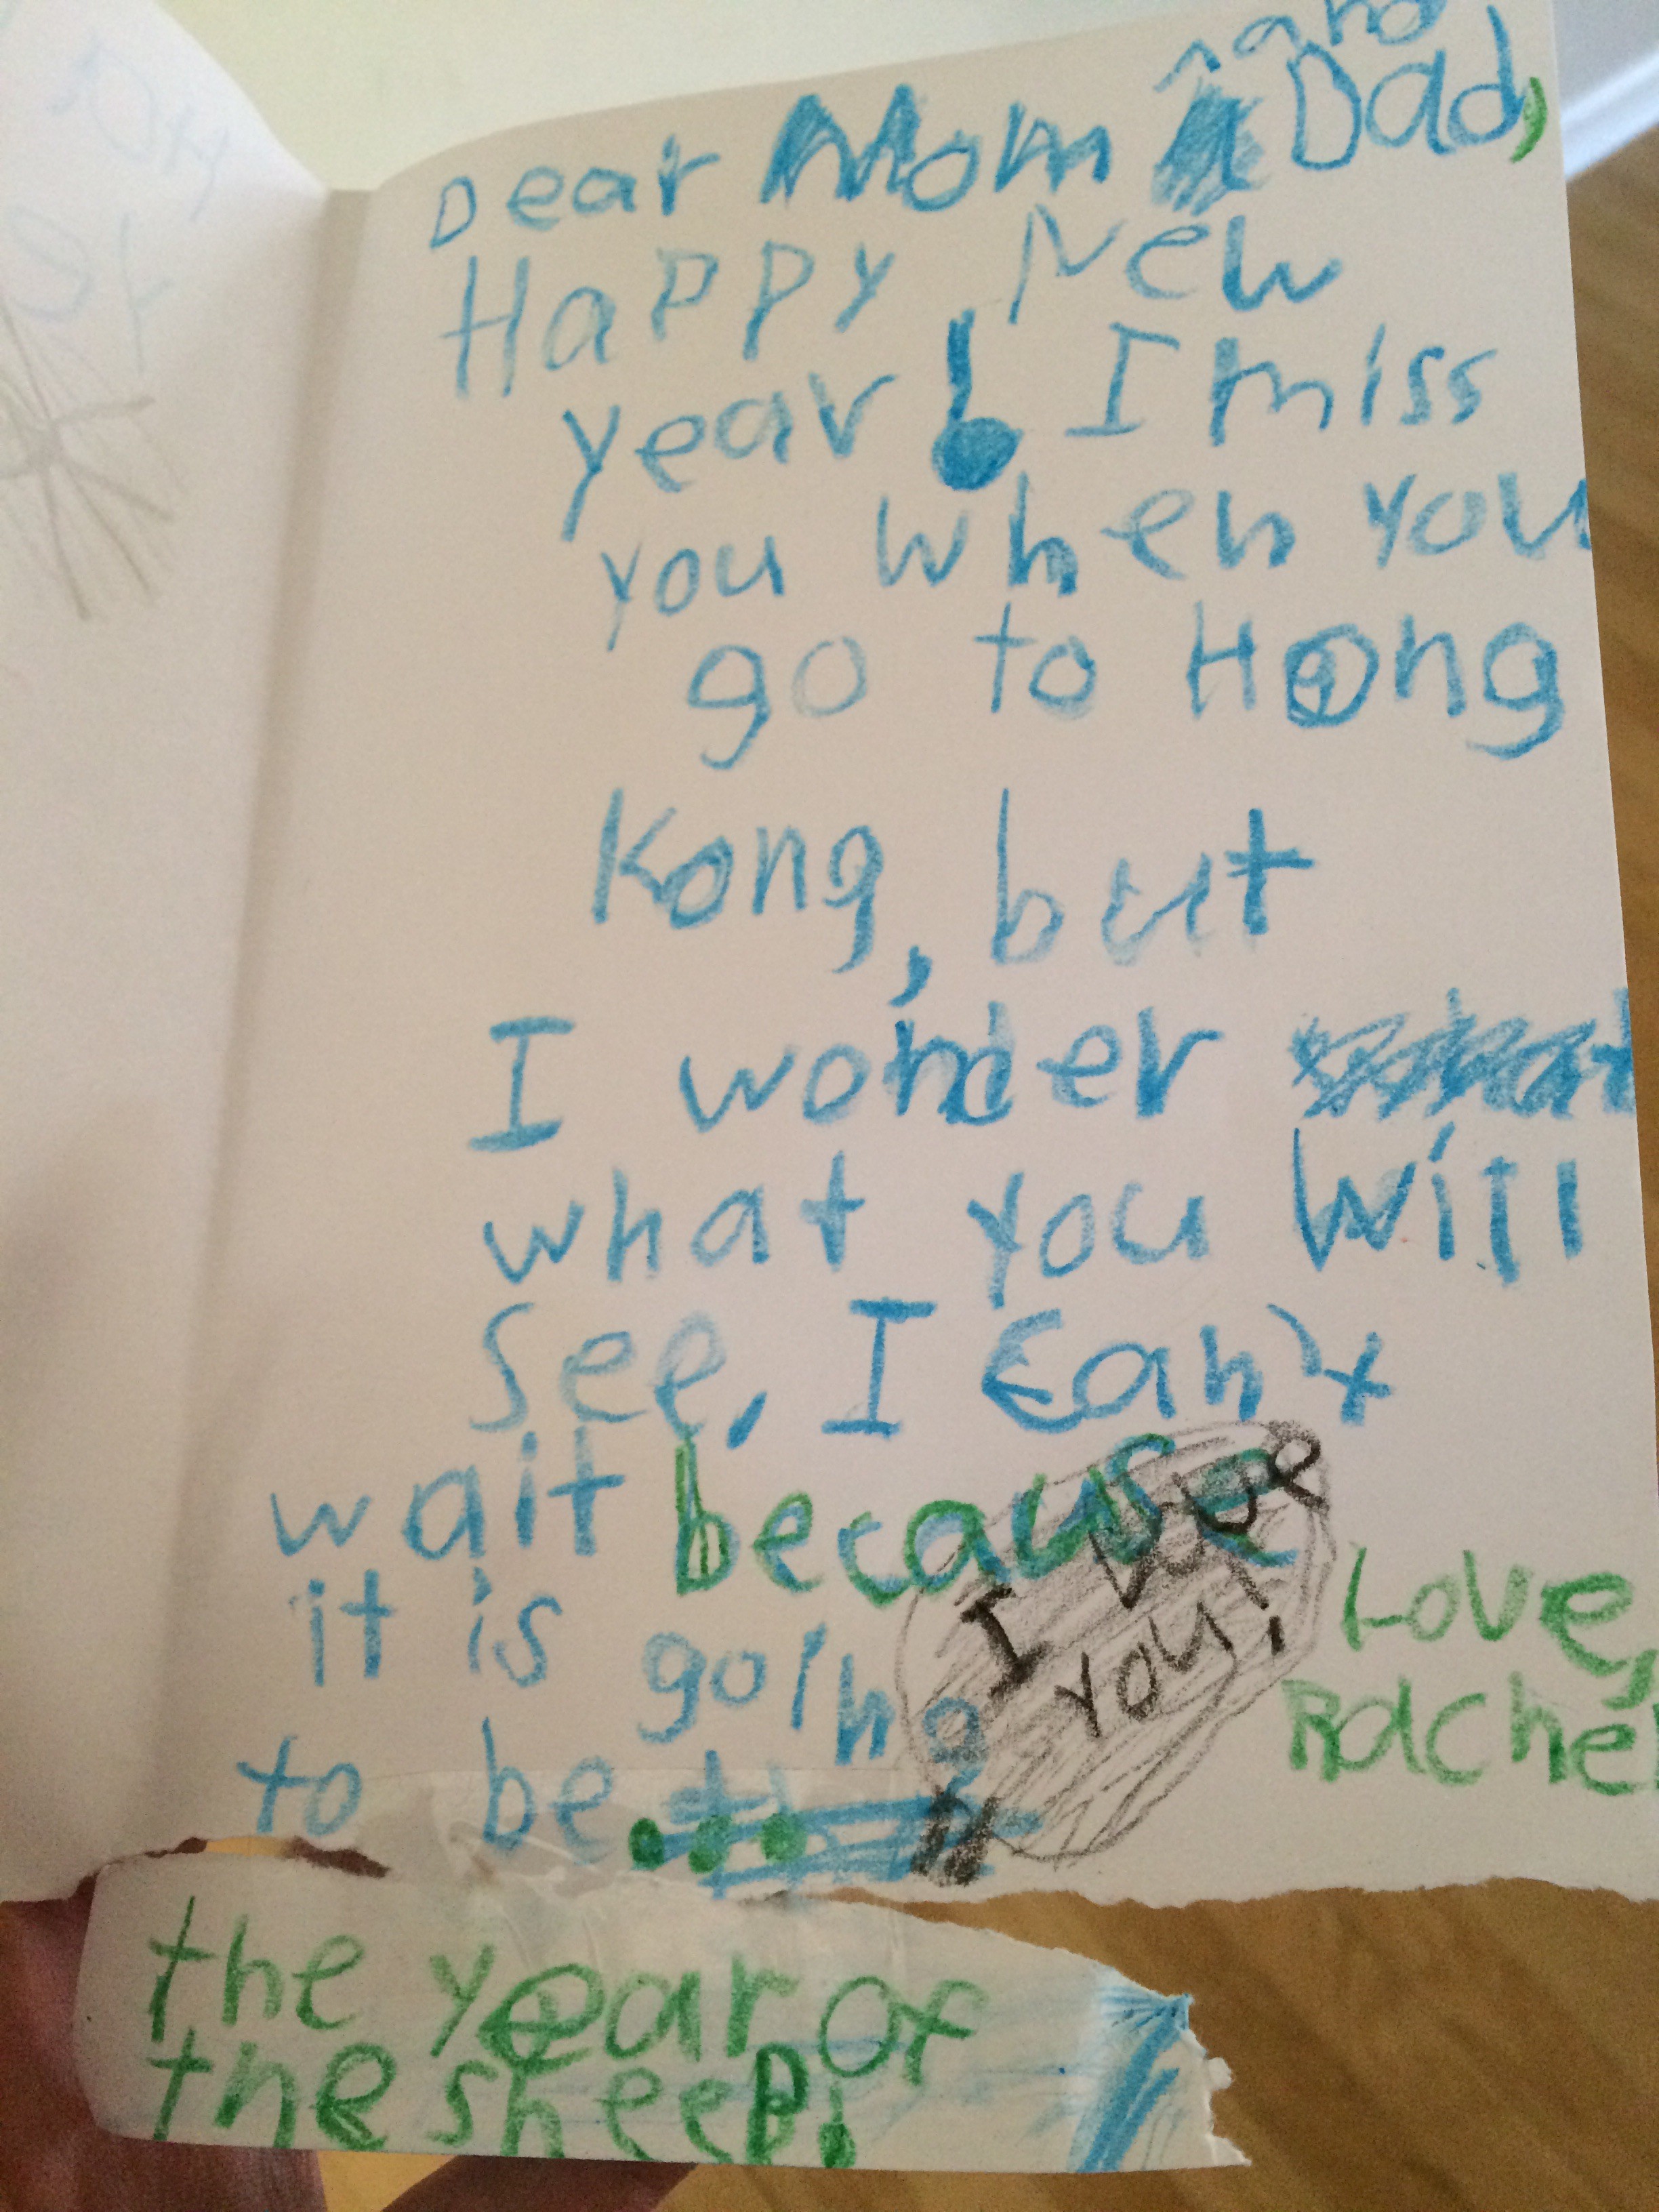 and
Dear Mom Dad,
Happy New
year! I miss
you when you
go to Hong
Kong, but
I wonder
what you will
see, I can't
wait because
it is going
to be...
the year of
the sheep!
I love
you!
Love,
Rachel